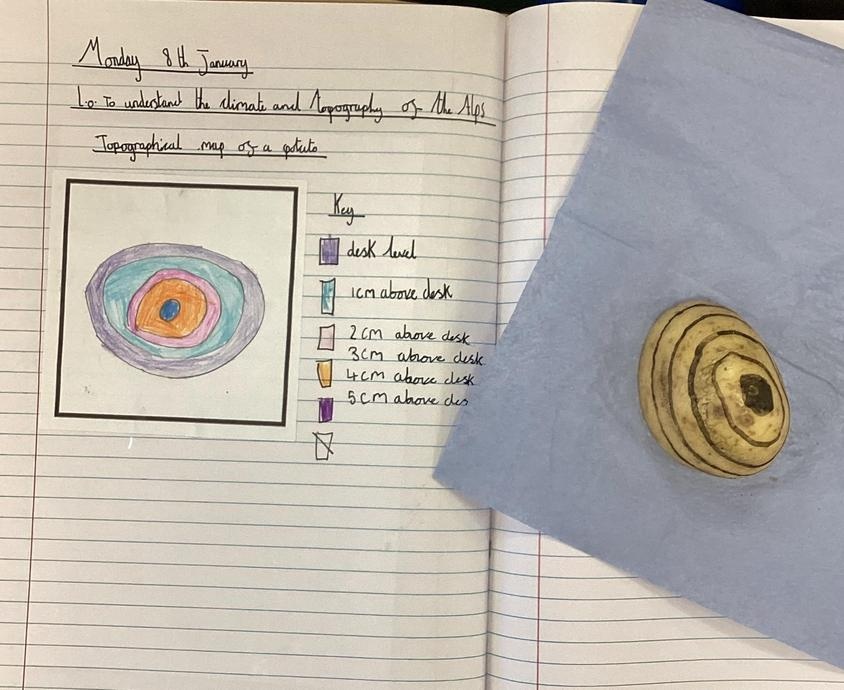 Monday 8th January
L.o: To understand the climate and topography of the Alps
Topographical map of a potato
Key
desk level
1cm above desk
2cm above desk
3cm above desk
4cm above desk
5cm above des